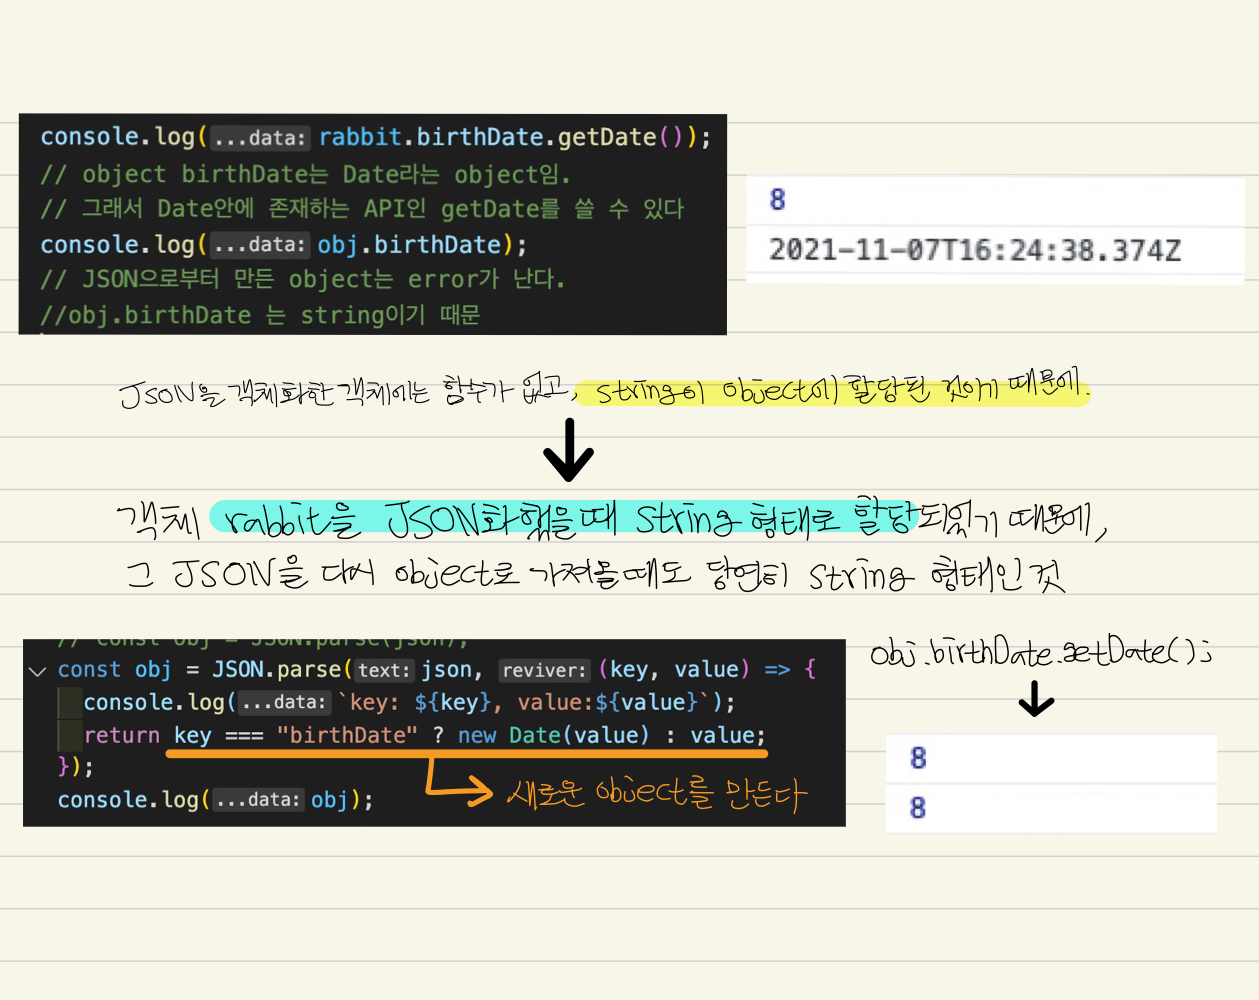 console.log(...data: rabbit.birthDate.getDate());
// object birthDate는 Date라는 object임.
// 그래서 Date안에 존재하는 API인 getDate를 쓸 수 있다
console.log(...data: obj.birthDate);
// JSON으로부터 만든 object는 error가 난다.
//obj.birthDate 는 string이기 때문
8
2021-11-07T16:24:38.374Z
JSON을 객체화한 객체에는 함수가 없고, string이 object에 할당된 것이기 때문에.
객체 rabbit을 JSON화했을때 string 형태로 할당되있기 때문에,
그 JSON을 다시 object로 가져올때도 당연히 string 형태인 것
// const obj = JSON.parse(json);
const obj = JSON.parse(text: json, reviver: (key, value) => {
console.log(...data: `key: ${key}, value:${value}`);
return key === "birthDate" ? new Date(value) : value;
});
console.log(...data: obj);
새로운 object를 만든다
obj.birthDate.getDate();
8
8